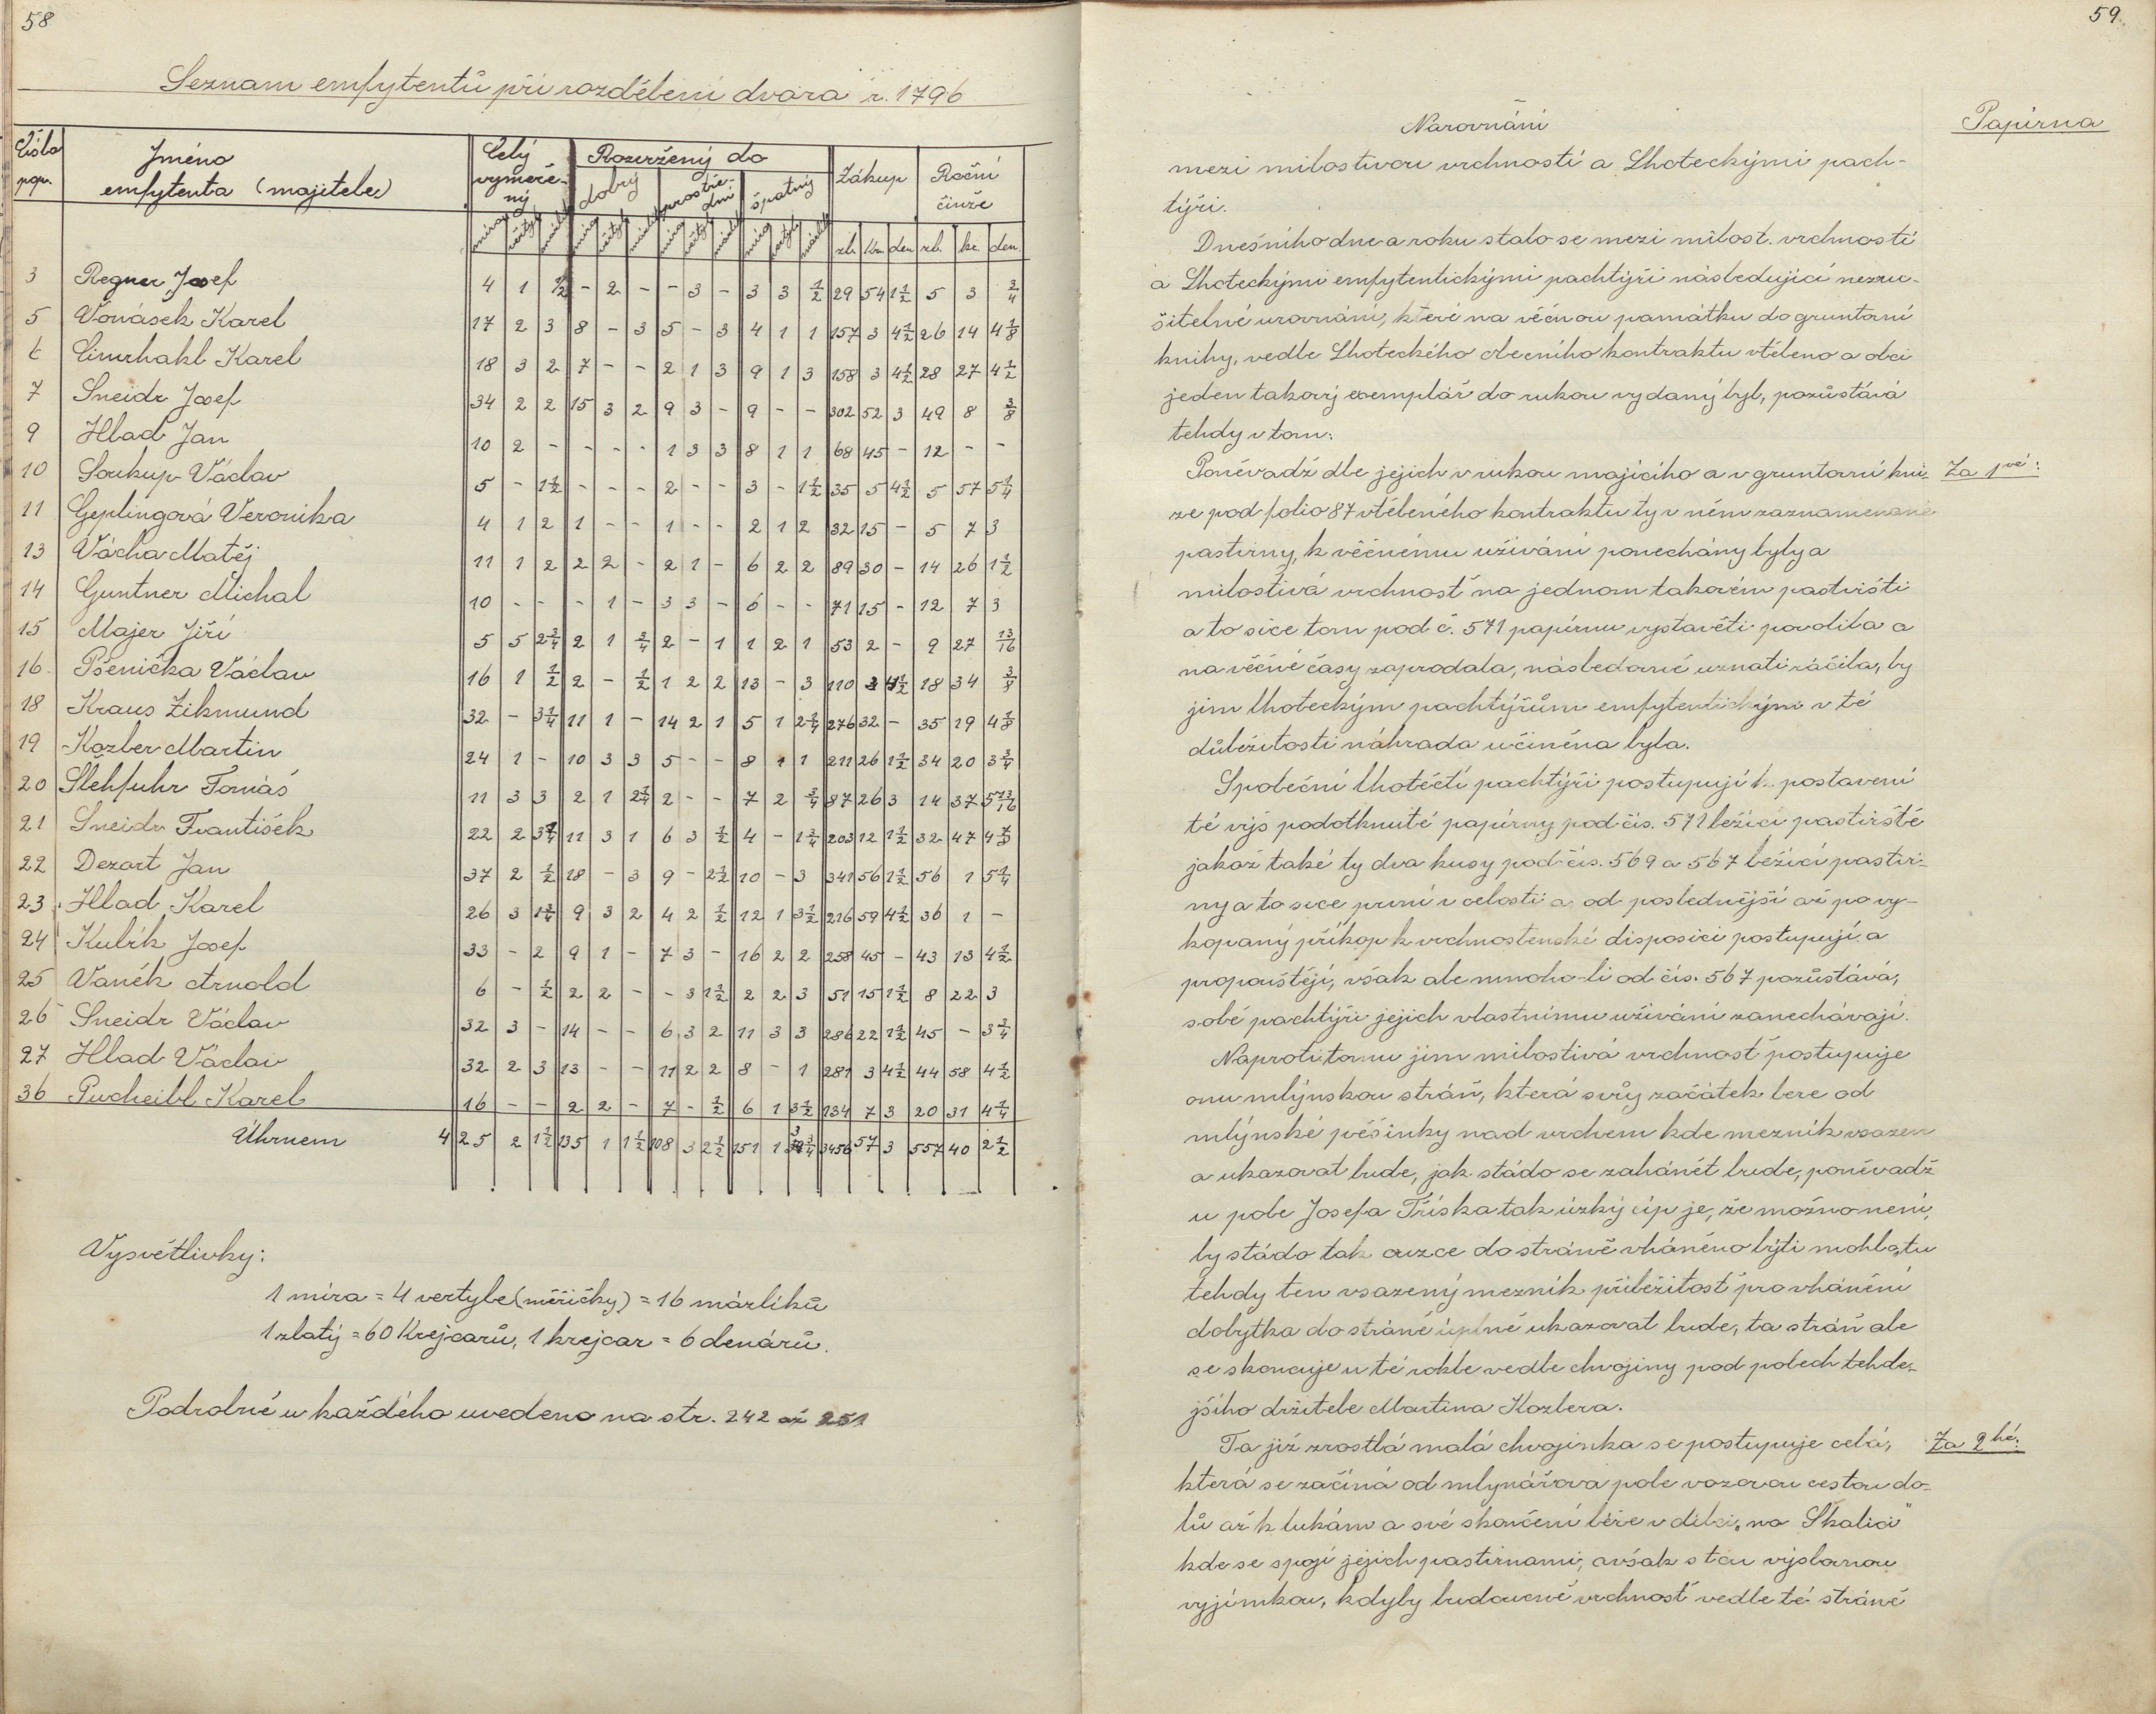 58
Seznam emfytentů při rozdělení dvora r. 1796
Číslo pop. Jméno emfytenta (majitele) Celý vyměře-ný Rozvržený do dobrý prostře-dní špatný Zákup Roční činže
zl. kr. den zl. kr. den.
3 Regner Josef 4 1 1/2 - 2 - - 3 - 3 3 1/2 29 54 1 1/2 5 3 3/4
5 Vonásek Karel 17 2 3 8 - 3 5 - 3 4 1 1 157 3 4 1/2 26 14 4 1/8
6 Cimrhakl Karel 18 3 2 7 - - 2 1 3 9 1 3 158 3 4 1/2 28 27 4 1/2
7 Šneidr Josef 34 2 2 15 3 2 9 3 - 9 - - 302 52 3 49 8 3/8
9 Hlad Jan 10 2 - - - - 1 3 3 8 1 1 68 45 - 12 - -
10 Soukup Václav 5 - 1 1/2 - - - 2 - - 3 - 1 1/2 35 5 4 1/2 5 57 5 1/4
11 Geplingová Veronika 4 1 2 1 - - 1 - - 2 1 2 32 15 - 5 7 3
13 Vácha Matěj 11 1 2 2 2 - 2 1 - 6 2 2 89 30 - 14 26 1 1/2
14 Guntner Michal 10 - - - 1 - 3 3 - 6 - - 71 15 - 12 7 3
15 Majer Jiří 5 5 2 3/4 2 1 3/4 2 - 1 1 2 1 53 2 - 9 27 13/16
16 Pšenička Václav 16 1 1/2 2 - 1/2 1 2 2 13 - 3 110 3 4 1/2 18 34 3/8
18 Kraus Zikmund 32 - 3 1/4 11 1 - 14 2 1 5 1 2 1/4 276 32 - 35 19 4 1/8
19 Kozler Martin 24 1 - 10 3 3 5 - - 8 1 1 211 26 1 1/2 34 20 3 3/4
20 Šlehfuhr Tomáš 11 3 3 2 1 2 1/4 2 - - 7 2 3/4 87 26 3 14 37 5 13/16
21 Šneidr František 22 2 3 1/4 11 3 1 6 3 1/2 4 - 1 3/4 203 12 1 1/2 32 47 4 7/8
22 Dezort Jan 37 2 1/2 18 - 3 9 - 2 1/2 10 - 3 341 56 1 1/2 56 1 5 1/4
23 Hlad Karel 26 3 1 3/4 9 3 2 4 2 1/2 12 1 3 1/2 216 59 4 1/2 36 1 -
24 Kubík Josef 33 - 2 9 1 - 7 3 - 16 2 2 258 45 - 43 13 4 1/2
25 Vaněk Arnold 6 - 1/2 2 2 - - 3 1 1/2 2 2 3 51 15 1 1/2 8 22 3
26 Šneidr Václav 32 3 - 14 - - 6 3 2 11 3 3 286 22 1 1/2 45 - 3 3/4
27 Hlad Václav 32 2 3 13 - - 11 2 2 8 - 1 281 3 4 1/2 44 58 4 1/2
36 Pucheibl Karel 16 - - 2 2 - 7 - 1/2 6 1 3 1/2 134 7 3 20 31 4 1/4
Úhrnem 425 2 1 1/2 135 1 1 1/2 108 3 2 1/2 151 1 3 3/4 3456 57 3 557 40 2 1/2
Vysvětlivky:
1 míra = 4 vertyle (měřičky) = 16 márlíků
1 zlatý = 60 Krejcarů, 1 krejcar = 6 denárů.
Podrobně u každého uvedeno na str. 242 až 251
59
Narovnání
Papírna
mezi milostivou vrchností a Lhoteckými pach-
týři.
Dnešního dne a roku stalo se mezi milost. vrchností
a Lhoteckými emfytentickými pachtýři následující nezru-
šitelné urovnání, které na věčnou památku do gruntovní
knihy, vedle Lhoteckého obecního kontraktu vtěleno a obci
jeden takový exemplář do rukou vydaný byl, pozůstává
tehdy v tom:
Poněvadž dle jejich v rukou majícího a v gruntovní kni- Za 1vé:
ze pod folio 87 vtěleného kontraktu ty v něm zaznamenané
pastviny, k věčnému užívání ponechány byly a
milostivá vrchnosť na jednom takovém pastvišti
a to sice tom pod č. 571 papírnu vystavěti povolila a
na věčné časy zaprodala, následovně uznati ráčila, by
jim lhoteckým pachtýřům emfytentickým v té
důležitosti náhrada učiněna byla.
Společní lhotečtí pachtýři postupují k postavení
té výš podotknuté papírny pod čís. 571 ležící pastviště
jakož také ty dva kusy pod čís. 569 a 567 ležící pastvi-
ny a to sice první v celosti a od poslednější až po vy-
kopaný příkop k vrchnostenské disposici postupují a
propouštějí, však ale mnoho-li od čís. 567 pozůstává,
sobě pachtýři jejich vlastnímu užívání zanechávají.
Naproti tomu jim milostivá vrchnosť postupuje
onu mlýnskou stráň, která svůj začátek bere od
mlýnské pěšinky nad vrchem kde mezník vsazen
a ukazovat bude, jak stádo se zahánět bude, poněvadž
u pole Josefa Tříska tak úzký cíp je, že možno není,
by stádo tak ouzce do stráně vháněno býti mohlo, tu
tehdy ten vsazený mezník příležitosť pro vhánění
dobytka do stráně úplně ukazovat bude, ta stráň ale
se skoncuje u té rokle vedle chvojiny pod polech tehde-
jšího držitele Martina Kozlera.
Ta již zrostlá malá chvojinka se postupuje celá, Za 2hé:
která se začíná od mlynářova pole vozovou cestou do-
lů až k lukám a své skončení béře v dílci „na Skalici"
kde se spojí jejich pastvinami, avšak s tou výslovnou
vyjímkou, kdyby budoucně vrchnosť vedle té stráně